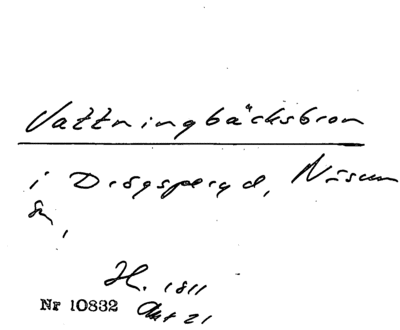 Vattningbäcksbron
i Drögsperyd, Näsum
sn,
H. 1811
Nr 10832 Akt 21